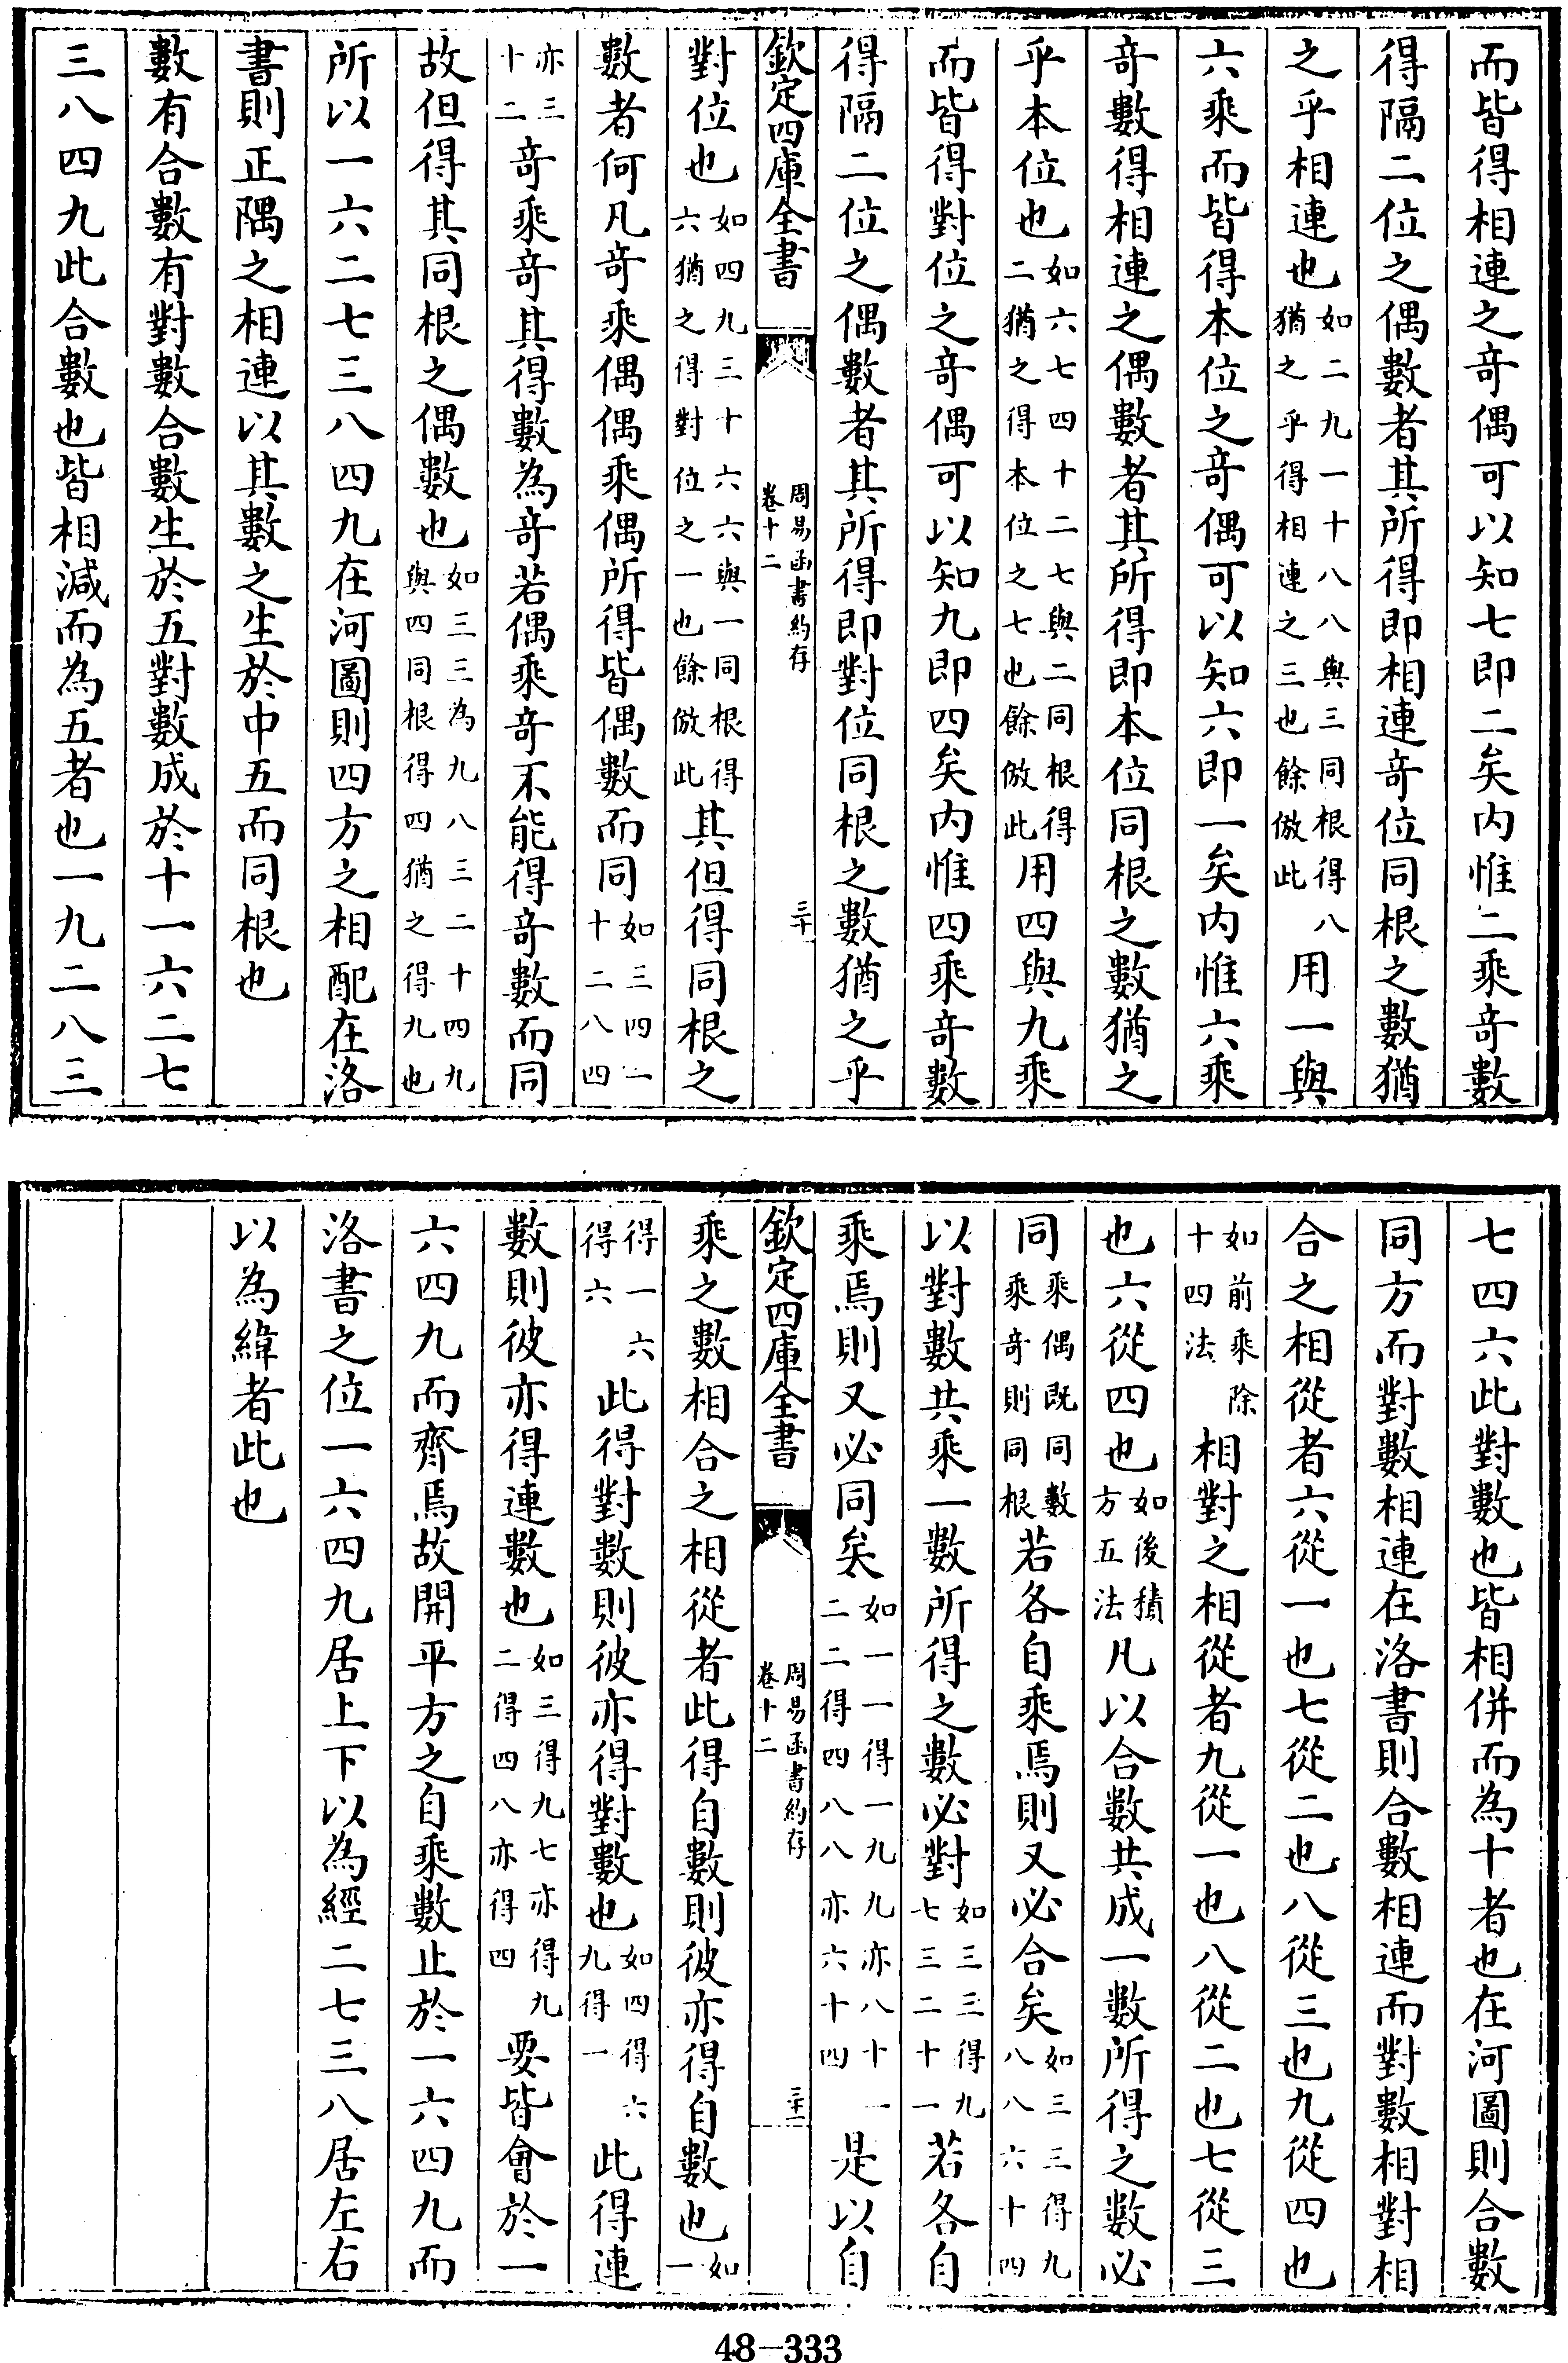 而皆得相連之竒偶可以知七即二矣内惟二乘竒數
得隔二位之偶數者其所得即相連竒位同根之數猶
之乎相連也如二九一十八八與三同根得八猶之乎得相連之三也餘倣此用一與
六乘而皆得本位之竒偶可以知六即一矣内惟六乘
竒數得相連之偶數者其所得即本位同根之數猶之
乎本位也如六七四十二七與二同根得二猶之得本位之七也餘倣此用四與九乘
而皆得對位之竒偶可以知九即四矣内惟四乘竒數
得隔二位之偶數者其所得即對位同根之數猶之乎
欽定四庫全書 周易函書約存 卷十二 三十
對位也如四九三十六六與一同根得六猶之得對位之一也餘倣此其但得同根之
數者何凡竒乘偶偶乘偶所得皆偶數而同如三四一十二八四
亦三十二竒乘竒其得數為竒若偶乘竒不能得竒數而同
故但得其同根之偶數也如三三為九八三二十四九與四同根得四猶之得九也
所以一六二七三八四九在河圖則四方之相配在洛
書則正隅之相連以其數之生於中五而同根也
數有合數有對數合數生於五對數成於十一六二七
三八四九此合數也皆相減而為五者也一九二八三
七四六此對數也皆相併而為十者也在河圖則合數
同方而對數相連在洛書則合數相連而對數相對相
合之相從者六從一也七從二也八從三也九從四也
如前乘除十四法相對之相從者九從一也八從二也七從三
也六從四也如後積方五法凡以合數共成一數所得之數必
同乘偶既同數乘竒則同根若各自乘焉則又必合矣如三三得九八八六十四
以對數共乘一數所得之數必對如三三得九七三二十一若各自
乘焉則又必同矣如一一得一九九亦八十一二二得四八八亦六十四是以自
欽定四庫全書 周易函書約存 卷十二 三十一
乘之數相合之相從者此得自數則彼亦得自數也如一
得一六得六此得對數則彼亦得對數也如四得六九得一此得連
數則彼亦得連數也如三得九七亦得九二得四八亦得四要皆會於一
六四九而齊焉故開平方之自乘數止於一六四九而
洛書之位一六四九居上下以為經二七三八居左右
以為緯者此也
48-333